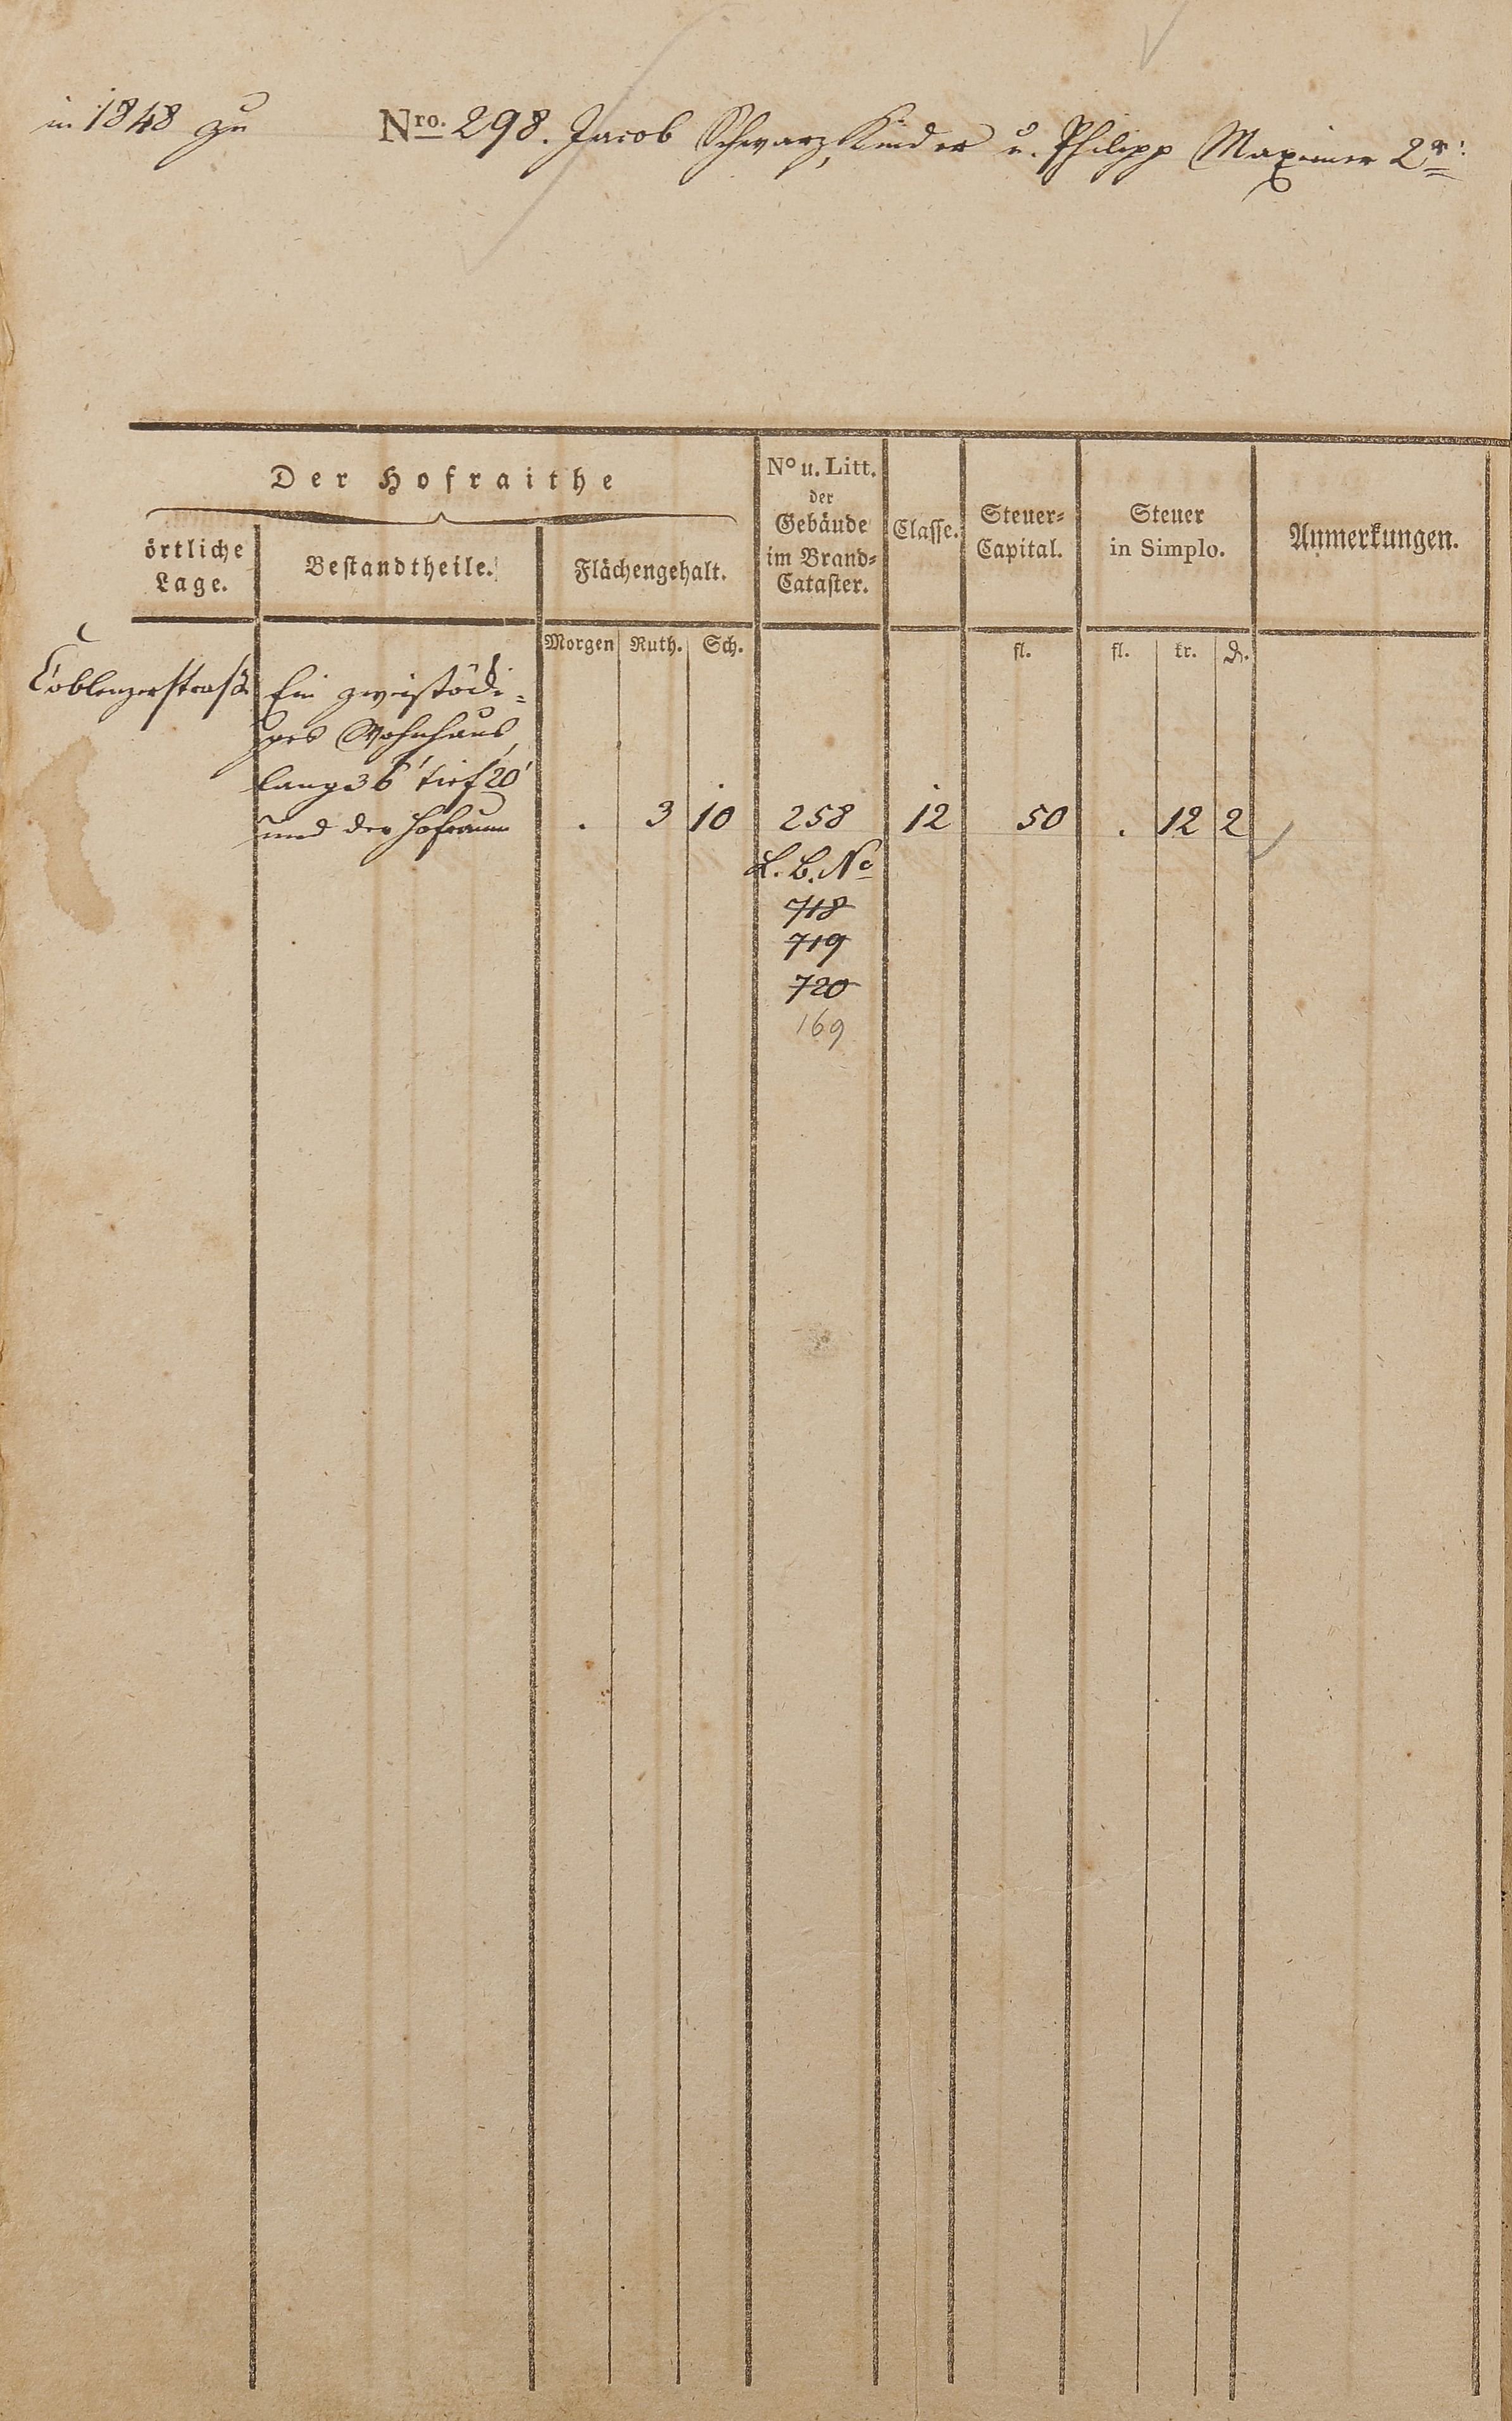 in 1848 zu Nro. 298. Jacob Schwarz, Kinder u. Philipp Maximer 2r:
Der Hofraithe
örtliche
Lage.
Bestandtheile.
Flächengehalt.
No u. Litt.
der
Gebäude
im Brand-
Cataster.
Classe.
Steuer-
Capital.
Steuer
in Simplo.
Anmerkungen.
Morgen Ruth. Sch. fl. fl. kr. d.
Coblenzerstraße Ein zweistöcki-
ges Wohnhaus,
lang 36' tief 20'
und der Hofraum . 3 10 258 12 50 . 12 2
L. B. No
718
719
720
169